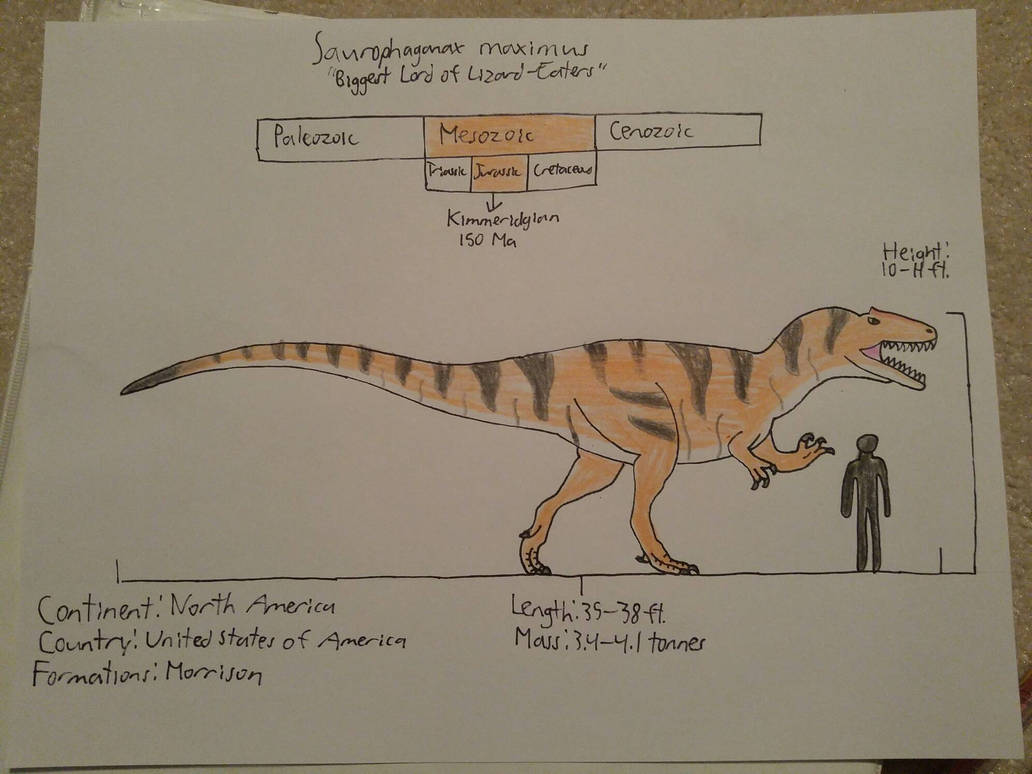 Saurophaganax maximus
"Biggest Lord of Lizard-Eaters"
Paleozoic Mesozoic Cenozoic
Triassic Jurassic Cretaceous
Kimmeridgian
150 Ma
Height:
10-11 ft.
Continent: North America
Country: United States of America
Formations: Morrison
Length: 35-38 ft.
Mass: 3.4-4.1 tonnes